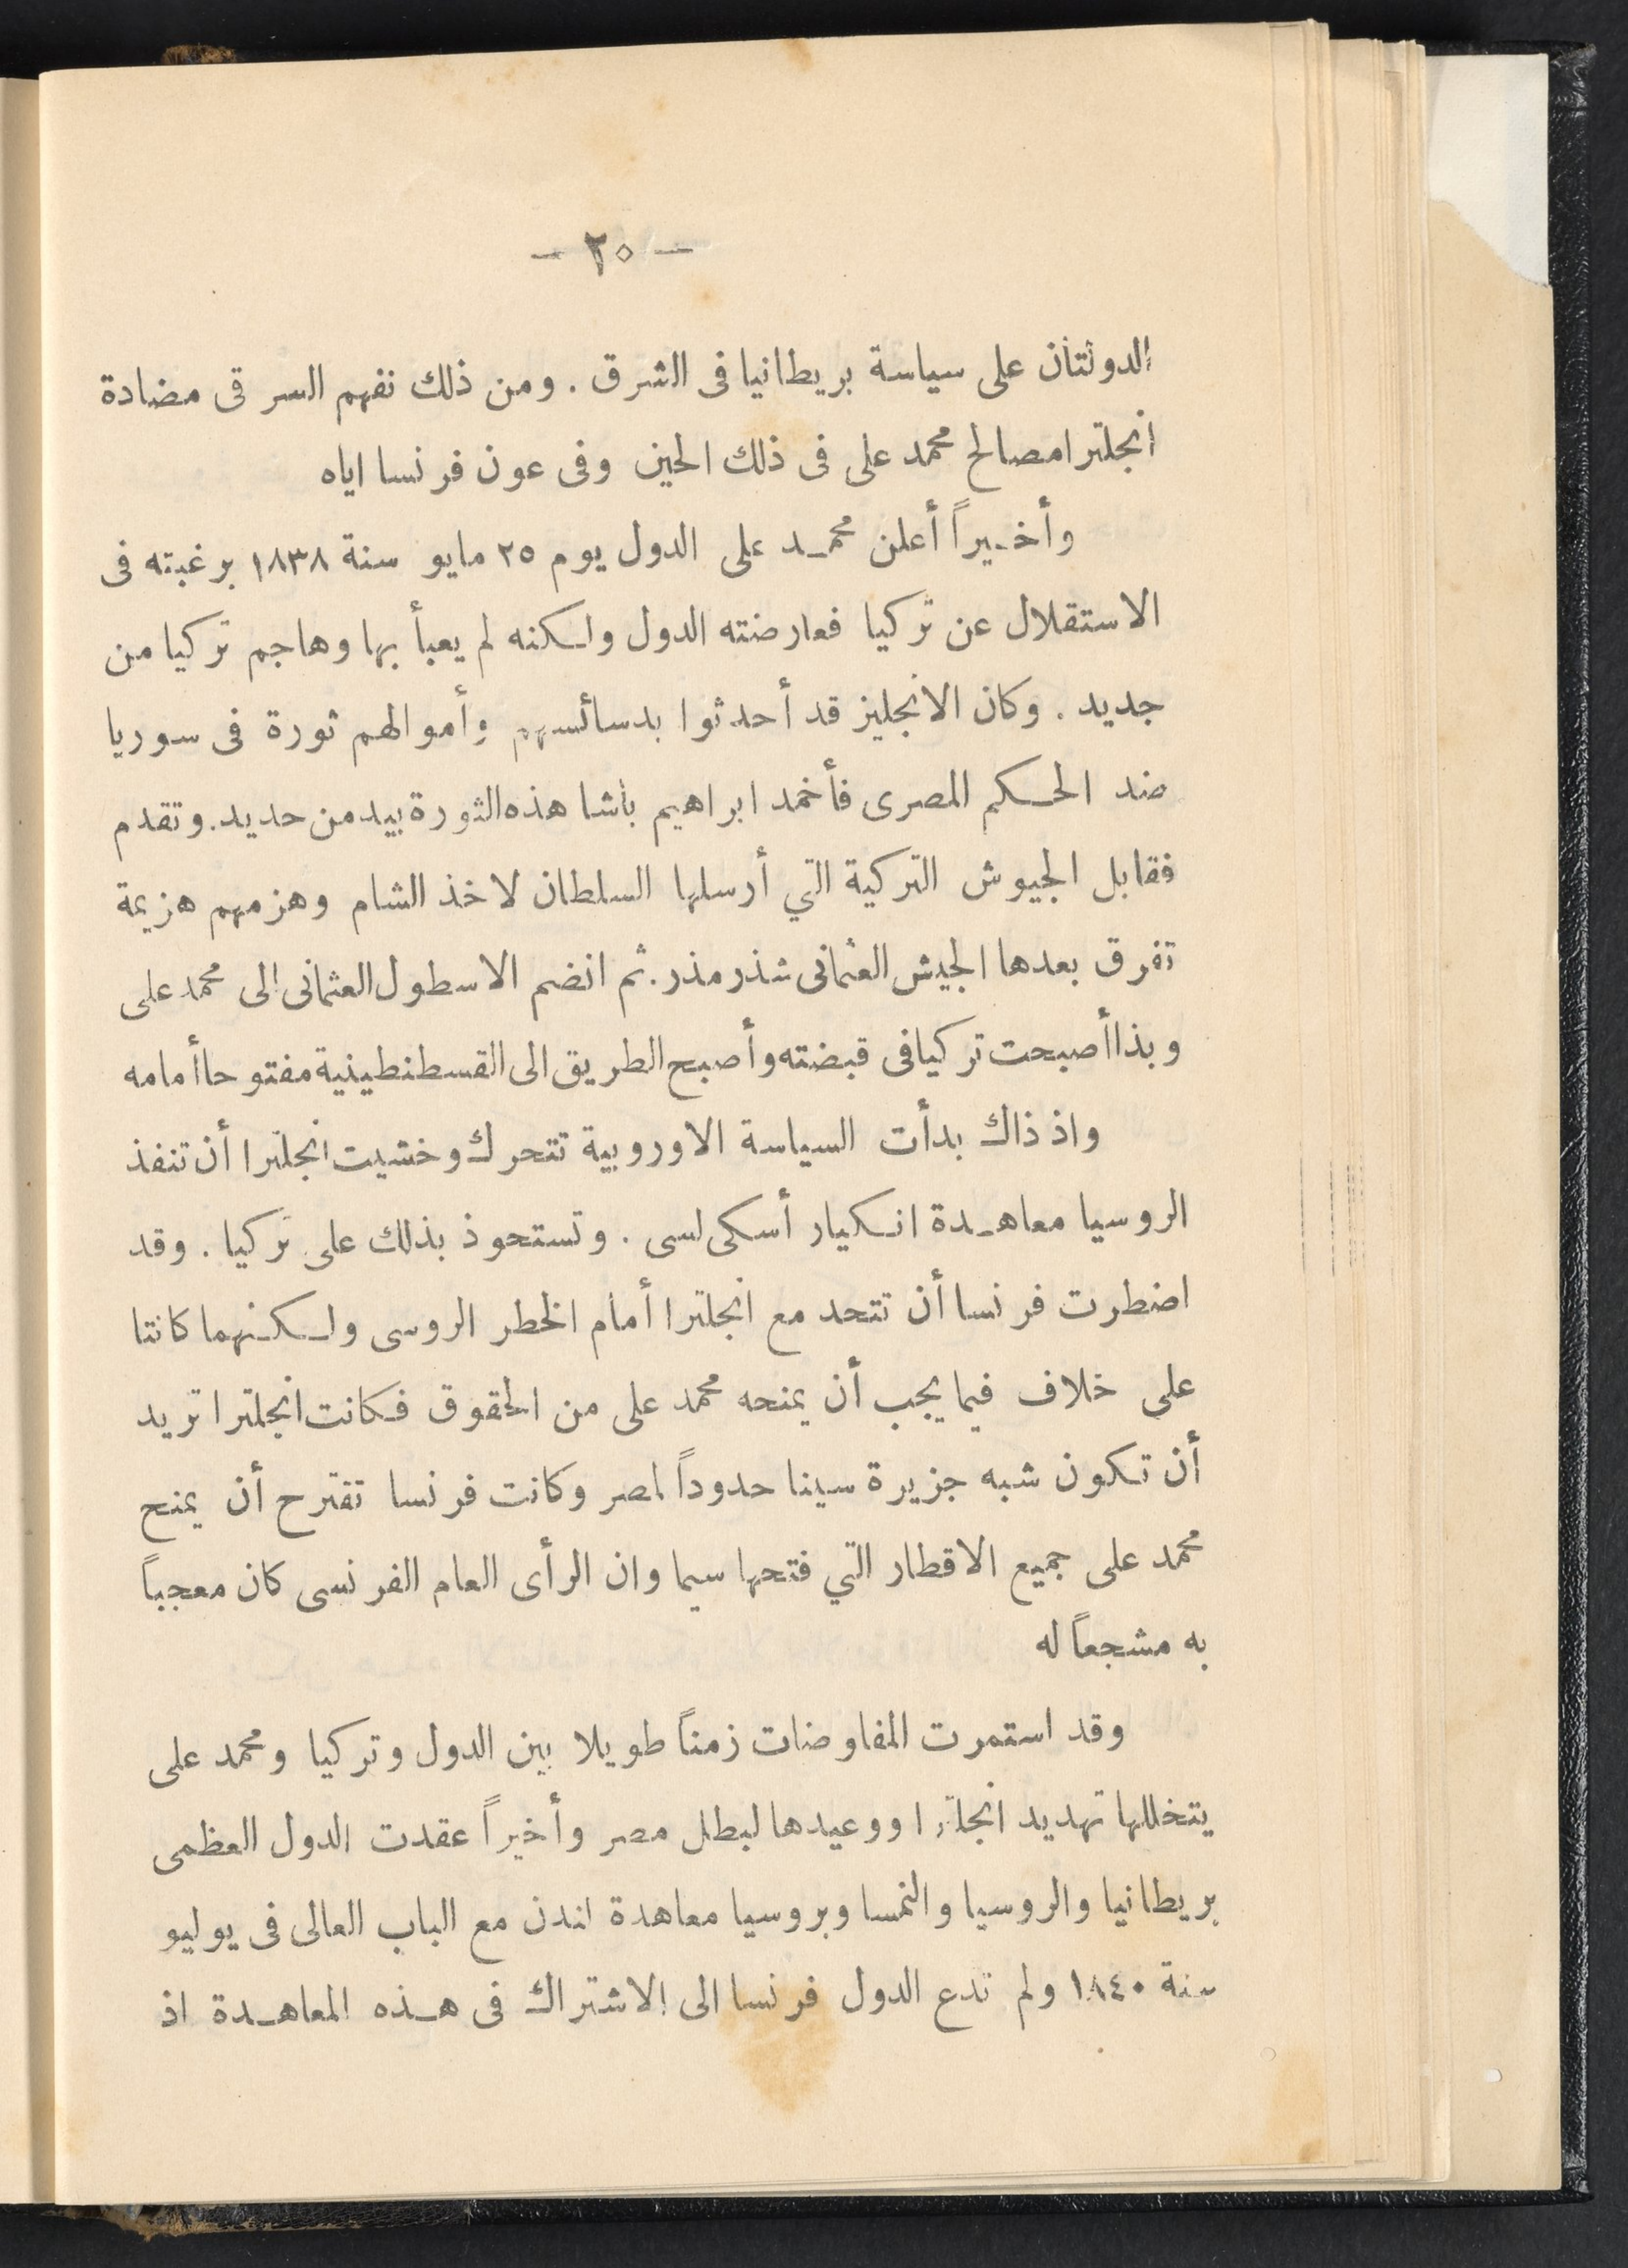 — ٢٠ —
الدولتان على سياسة بريطانيا فى الشرق . ومن ذلك نفهم السر فى مضادة
انجلترا مصالح محمد على فى ذلك الحين وفى عون فرنسا اياه
وأخيراً أعلن محمد على الدول يوم ٢٥ مايو سنة ١٨٣٨ برغبته فى
الاستقلال عن تركيا فعارضته الدول ولكنه لم يعبأ بها وهاجم تركيا من
جديد . وكان الانجليز قد أحدثوا بدسائسهم وأموالهم ثورة فى سوريا
ضد الحكم المصرى فأخمد ابراهيم باشا هذه الثورة بيد من حديد . وتقدم
فقابل الجيوش التركية التي أرسلها السلطان لاخذ الشام وهزمهم هزيمة
تفرق بعدها الجيش العثمانى شذر مذر . ثم انضم الاسطول العثمانى إلى محمد على
وبذا أصبحت تركيا فى قبضته وأصبح الطريق الى القسطنطينية مفتوحا أمامه
واذ ذاك بدأت السياسة الاوروبية تتحرك وخشيت انجلترا أن تنفذ
الروسيا معاهدة انكيار أسكى لسى . وتستحوذ بذلك على تركيا . وقد
اضطرت فرنسا أن تتحد مع انجلترا أمام الخطر الروسى ولكنهما كانتا
على خلاف فيما يجب أن يمنحه محمد على من الحقوق فكانت انجلترا تريد
أن تكون شبه جزيرة سينا حدوداً لمصر وكانت فرنسا تقترح أن يمنح
محمد على جميع الاقطار التي فتحها سيما وان الرأى العام الفرنسى كان معجباً
به مشجعاً له
وقد استمرت المفاوضات زمناً طويلا بين الدول وتركيا ومحمد على
يتخللها تهديد انجلترا ووعيدها لبطل مصر وأخيراً عقدت الدول العظمى
بريطانيا والروسيا والنمسا وبروسيا معاهدة لندن مع الباب العالى فى يوليو
سنة ١٨٤٠ ولم تدع الدول فرنسا الى الاشتراك فى هذه المعاهدة اذ